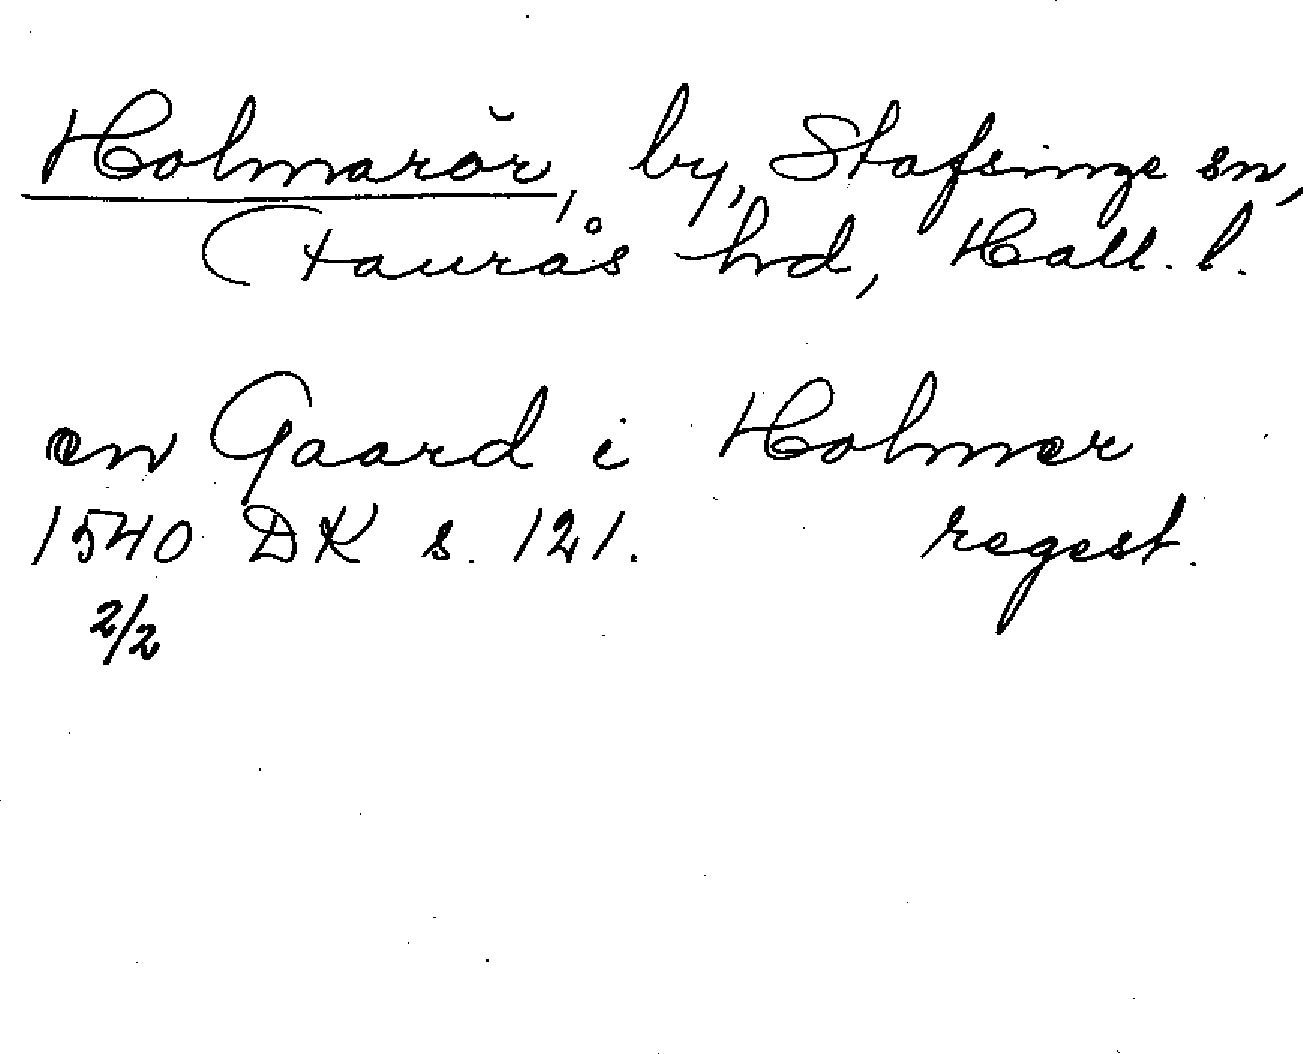 Holmarör, by, Stafsinge sn,
Faurås hd, Hall. l.
en Gaard i Holmer
1540 DK s. 121. regest.
2/2